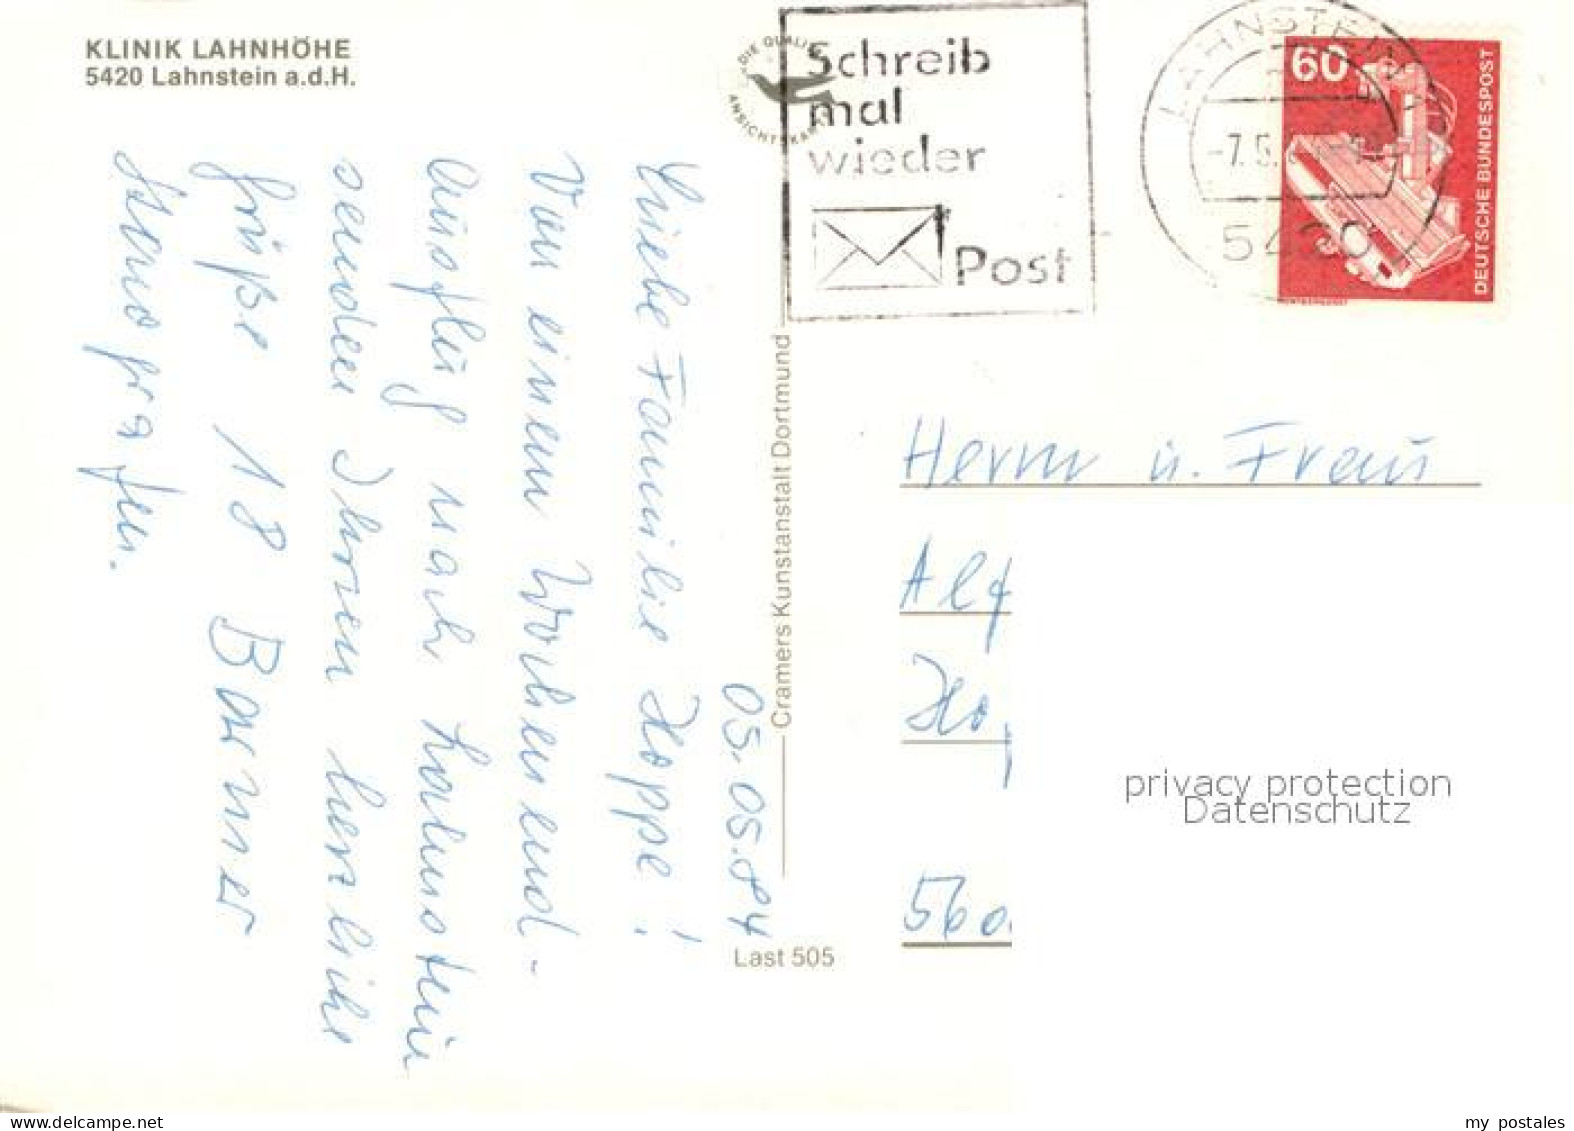 KLINIK LAHNHÖHE
5420 Lahnstein a.d.H.
DIE QUALI
ANSICHTSKA
Schreib
mal
wieder
Post
LAHNSTEIN
-7.5.
5420
60
DEUTSCHE BUNDESPOST
05.05.84
Liebe Familie Hoppe!
Von einem Wochenend-
ausflug nach Lahnstein
senden Ihnen herzliche
Grüße 18 Barmer
Stenografen.
Cramers Kunstanstalt Dortmund
Last 505
Herrn u. Frau
Alf
Hop
560
privacy protection
Datenschutz
delcampe.net
my postales